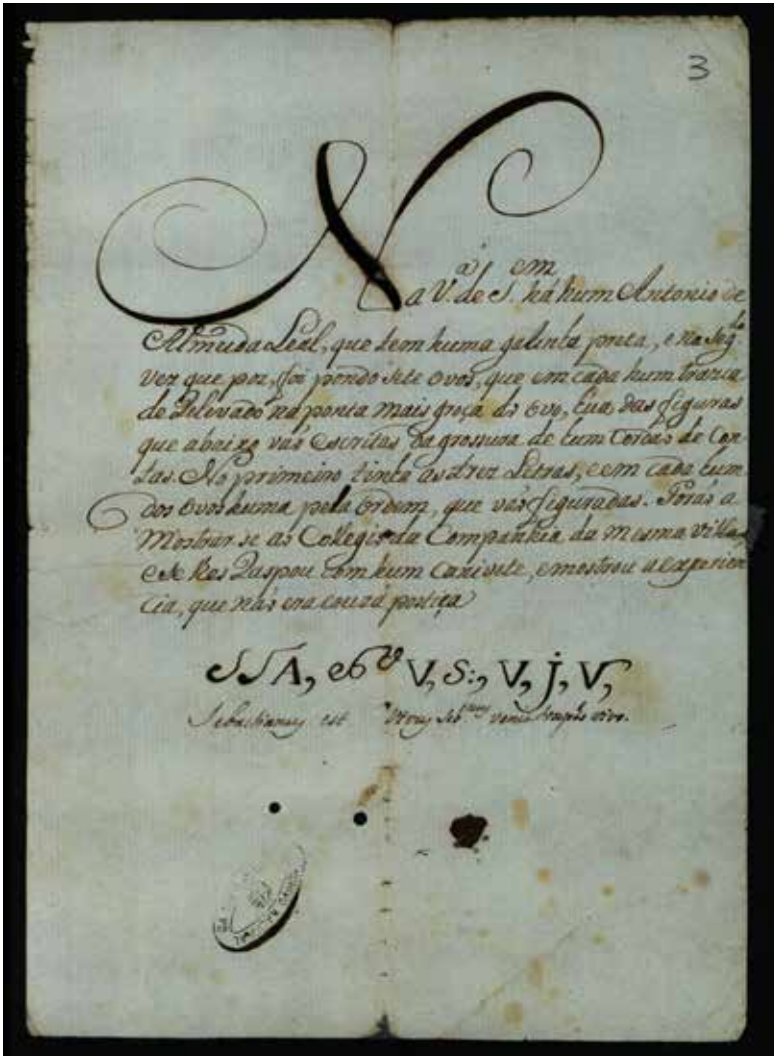 3
Na V.ª de S.em há hum Antonio de
Almeida Leal, que tem huma galinha preta, e na seg.da
vez que poz, foi pondo sete ovos, que em cada hum trazia
de Relevado na ponta mais groça do ovo, hua das figuras
que abaixo vaõ escritas da grossura de hum Cordaõ de Con-
tas. No primeiro tinha as trez Letras, e em cada hum
dos Ovos huma pela Ordem, que vaõ figuradas. Foraõ a
Mostrar-se ao Collegio da Companhia da mesma Villa,
e se lhes Raspou com hum Canivete, e mostrou a experien-
cia, que naõ era couza postiça
SSA, V, S:, V, j, V,
Sebastianus est Vivus